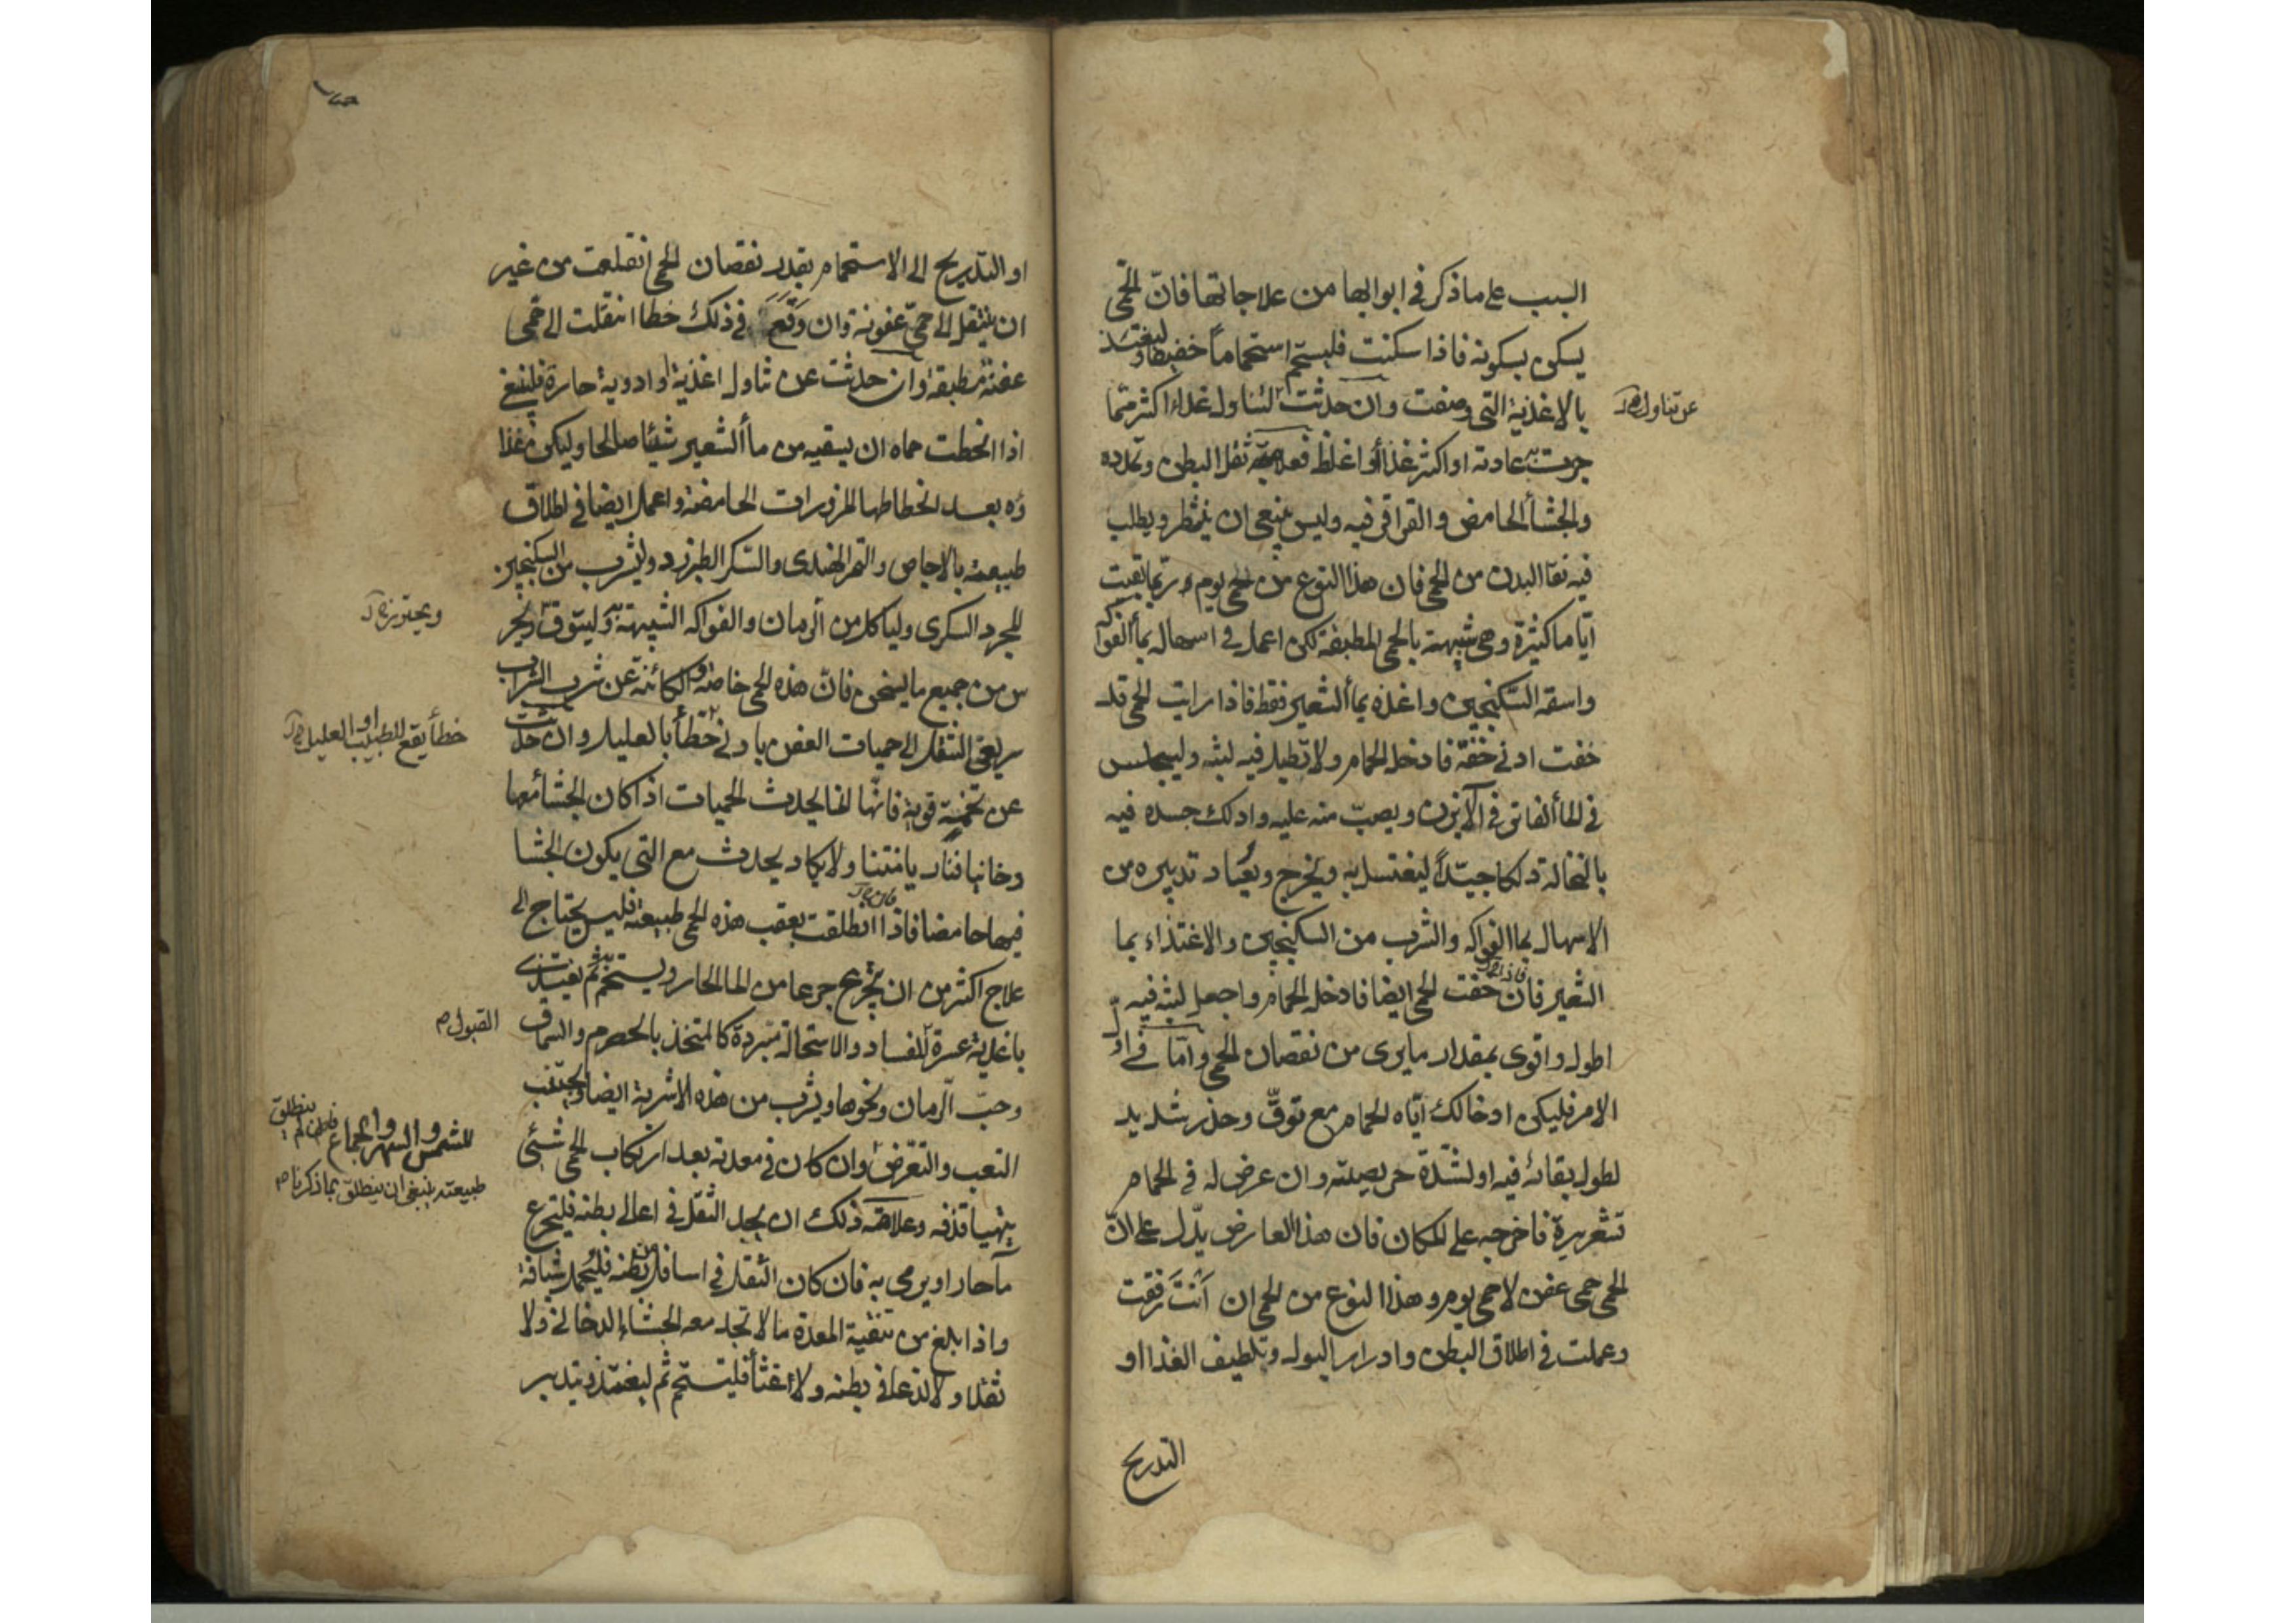 السبب على ما ذكر في ابوابها من علاجاتها فانّ الحمّى
يسكن بسكونه فاذا سكنت فليستحم استحماماً خفيفا وليغتذ
بالاغذية التي وصفت وان حدثت لتناول غذاء اكثر ممّا
عن تناول
جرت به عادته او اكثر غذاأ او اغلظ فعلامته ثقل البطن وتمدده
والجشأ الحامض والقراقر فيه وليس ينبغي ان ينتظر ويطلب
فيه نقأ البدن من الحمى فان هذا النوع من الحمى يوم ربما بقيت
ايّاما كثيرة وهي شبيهة بالحمى المطبقة لكن اعمل في اسهاله بمأ الفواكه
واسقه السكنجبين واغذه بمأ الشعير فقط فاذا رايت الحمى قد
خفت ادنى خفّة فادخله الحمام ولا تطيل فيه لبثه وليجلس
في المأ الفاتر في الآبزن ويصبّ منه عليه وادلك جسده فيه
بالنخالة دلكا جيّداً ليغتسل به ويخرج ويعاد تدبيره من
الاسهال بما الفواكه والشرب من السكنجبين والاغتذاء بما
الشعير فان خفت الحمى ايضا فادخله الحمام واجعل لبثه فيه
فاذا
اطول واقوى بمقدار ما يرى من نقصان الحمى وامّا في اول
الامر فليكن ادخالك ايّاه الحمام مع توقّ وحذر شديد
لطول بقائه فيه او لشدّة حر يصيبه وان عرض له في الحمام
قشعريرة فاخرجه على المكان فان هذا العارض يدّل على انّ
الحمى حمى عفن لا حمى يوم وهذا النوع من الحمى ان أنتَ رفقت
وعملت في اطلاق البطن وادرار البول وتلطيف الغذا او
التدريج
او التدريج الى الاستحمام بقدر نقصان الحمى انقلعت من غير
ان ينتقل الى حمى عفونة وان وَقَعَ في ذلك خطا انتقلت الى حمى
عفنة مطبقة وان حدثت عن تناول اغذية او ادوية حارة فلينبغ
اذا انحطت حماه ان يسقيه من مأ الشعير شيئا صالحا وليكن غذا
ؤه بعد انحطاطها المزورات الحامضة واعمل ايضا في اطلاق
طبيعته بالاجاص والتمر الهندى والسكر الطبرزد وليشرب من السكنجبين
المجرد السكرى ولياكل من الرمان والفواكه الشبيهة به وليتوق وليحتر
ويحترز
س من جميع ما يسخن فانّ هذه الحمى خاصة والكائنة عن شرب الشراب
سريعى التنقل الى حميات العفن بادنى خطأ بالعليل وان حدثت
خطأ يقع للطبيب او العليل
عن تخمة قوية فانّها انما يحدث الحميات اذا كان الجشأ معها
دخانيا فنار يا منتنا ولا يكاد يحدث مع التي يكون الجشا
فيها حامضا فاذا انطلقت بعقب هذه الحمى طبيعته فليس يحتاج الى
فان
علاج اكثر من ان يتجرع جرعا من الما الحار ويستحم ثم يغتذى
باغذية عسرة الفساد والاستحالة مبردة كالمتخذ بالحصرم والسماق
القبول
وحبّ الرمان ونحوها ويشرب من هذه الاشربة ايضا ويجتنب
التعب والتعرّض وان كان في معدته بعد ارتكاب الحمى شئى
للشمس والسهر والجماع فان لم ينطلق
طبيعته ينبغى ان ينطلق بما ذكرنا
يتهيا قذفه وعلامة ذلك ان يجد الثقل في اعالى بطنه فليتجرع
مآ حار او يرمى به فان كان الثقل في اسافل بطنه فليحمل شيافة
واذا بلغ من تنقية المعدة ما لا تجد معه الجشاء الدخانى ولا
ثقلا ولا لذعا في بطنه ولا غثأ فليستحم ثم ليغتذ وتدبير